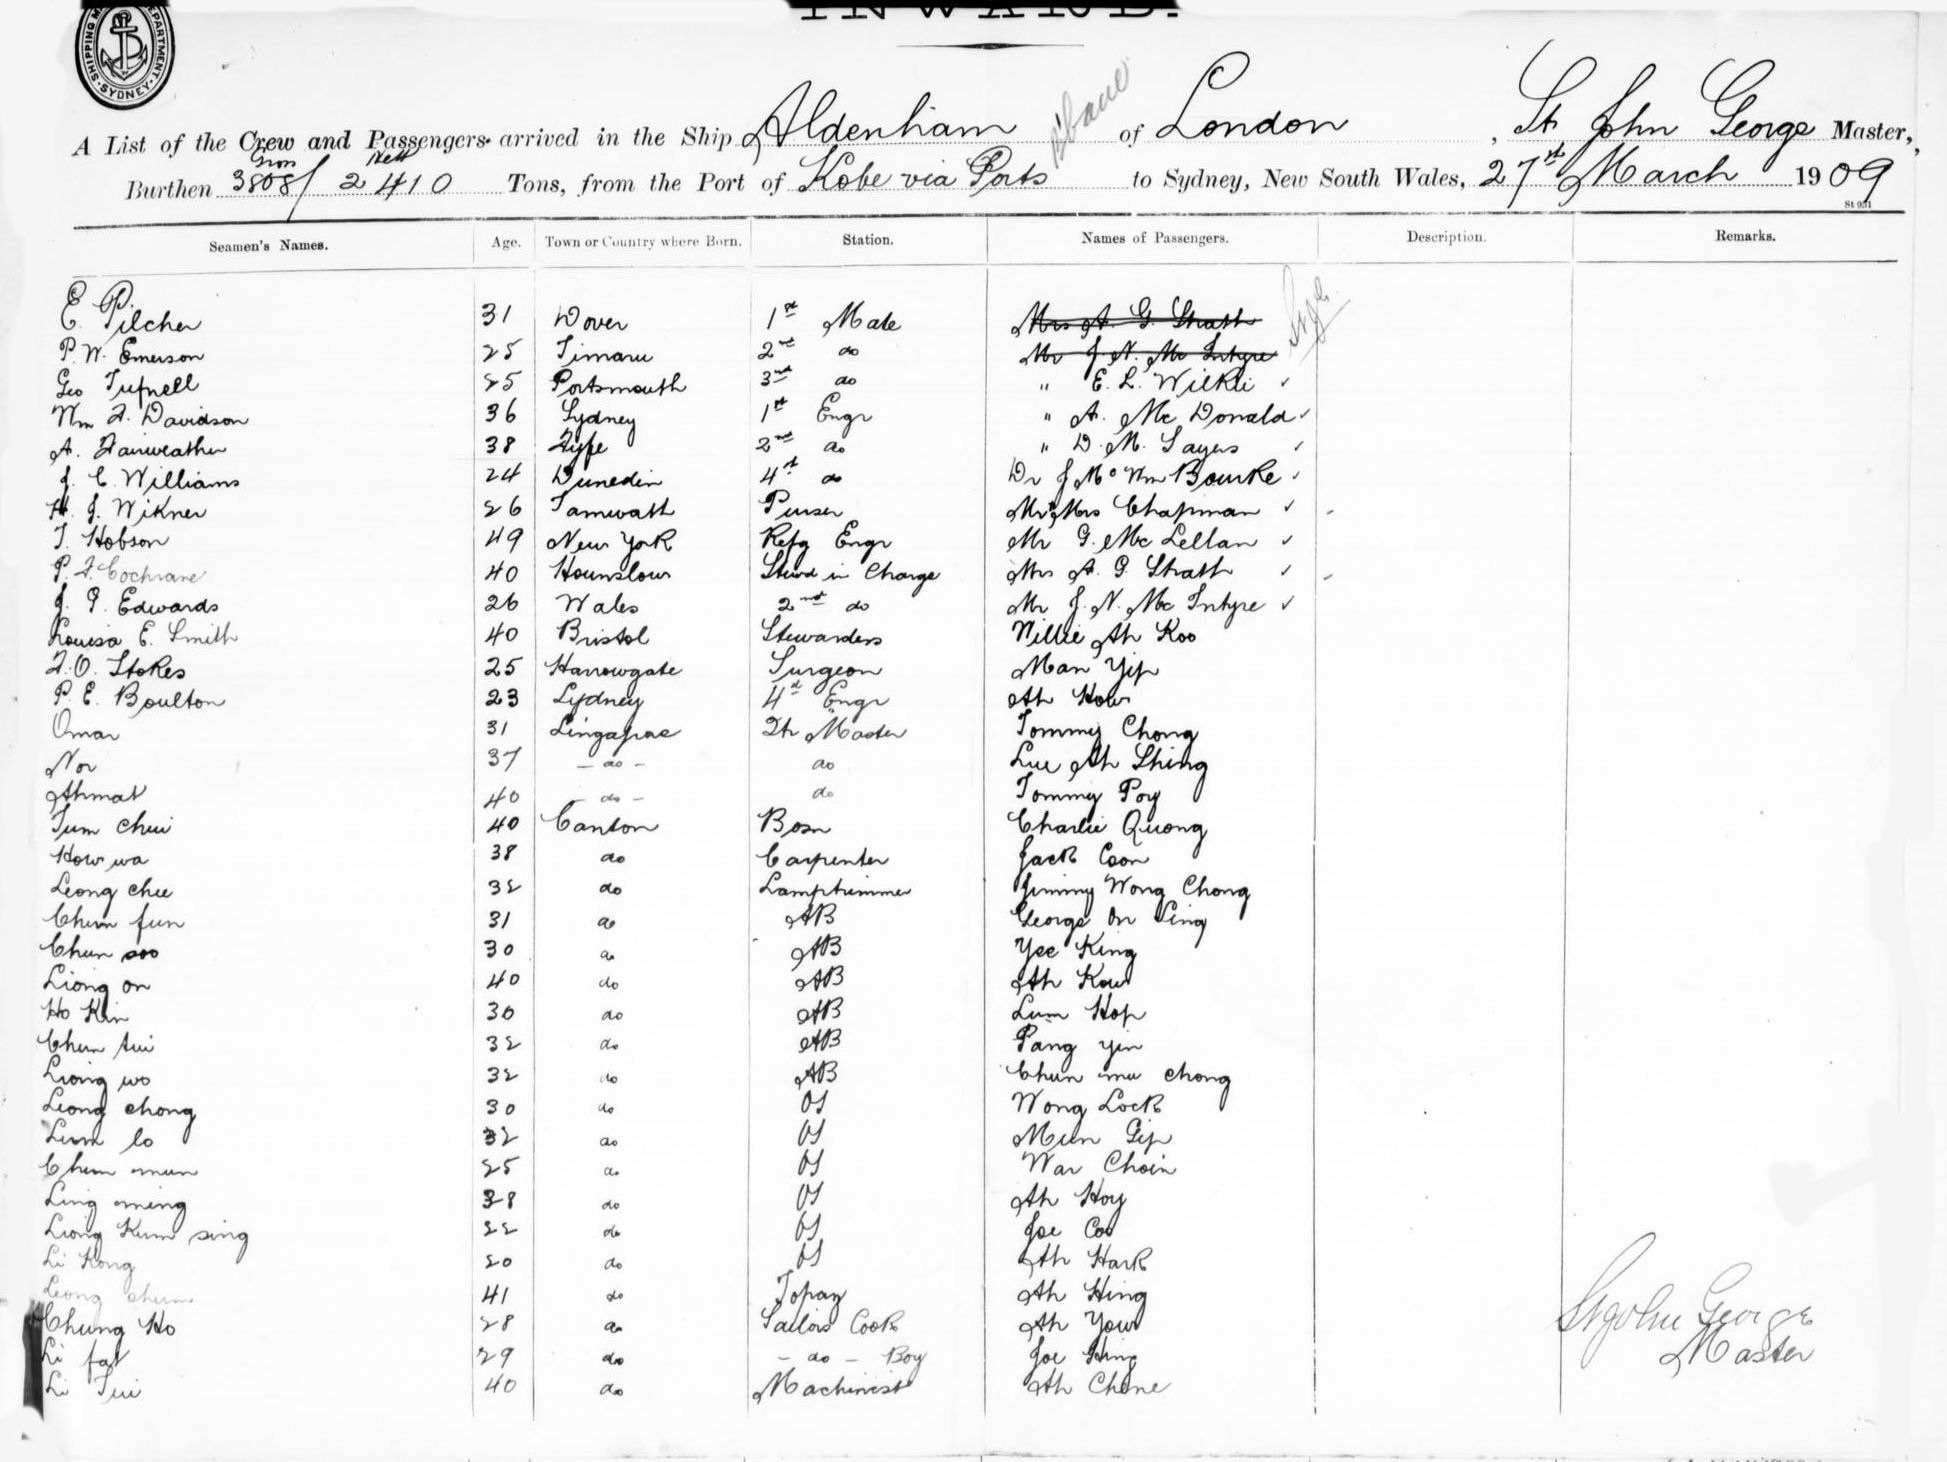 INWARD.
SHIPPING MASTER'S DEPARTMENT. SYDNEY
A List of the Crew and Passengers arrived in the Ship Aldenham of London, St John George Master,
Gross Nett
Burthen 3808/2410 Tons, from the Port of Kobe via Ports to Sydney, New South Wales, 27th March 1909
St 931
Seamen's Names. Age. Town or Country where Born. Station. Names of Passengers. Description. Remarks.
E. Pilcher 31 Dover 1st Mate Mrs A. G. Strath
P. W. Emerson 25 Timaru 2nd do Mr J. N. Mc Intyre
Geo Tufnell 25 Portsmouth 3rd do " E. L. Wilkie ✓
Wm F. Davidson 36 Sydney 1st Engr " A. Mc Donald ✓
A. Fairweather 38 Fyfe 2nd do " D. M. Sayers ✓
J. C. Williams 24 Dunedin 4th do Dr J Mc Wm Bourke ✓
H. J. Wikner 26 Tamworth Purser Mr & Mrs Chapman ✓
T. Hobson 49 New York Refg Engr Mr G. Mc Lellan ✓
P. F. Cochrane 40 Hounslow Stewd in Charge Mrs A. G. Strath ✓
J. G. Edwards 26 Wales 2nd do Mr J. N. Mc Intyre ✓
Louisa E. Smith 40 Bristol Stewardess Willie Ah Koo
F. O. Stokes 25 Harrowgate Surgeon Man Yip
P. E. Boulton 23 Sydney 4th Engr Ah How
Omar 31 Singapore Qtr Master Tommy Chong
Nor 37 - do - do Lue Ah Shing
Ahmat 40 - do - do Tommy Poy
Tum Chui 40 Canton Bosn Charlie Quong
How wa 38 do Carpenter Jack Coon
Leong chee 32 do Lamptrimmer Jimmy Wong Chong
Chum fun 31 do AB George On Sing
Chun soo 30 do AB Yee King
Liong on 40 do AB Ah Kow
Ho Kin 30 do AB Lum Hop
Chum tui 32 do AB Pang yin
Liong wo 32 do AB Chun mu chong
Leong chong 30 do OS Wong Lock
Lum lo 32 do OS Mun Gip
Chum mun 25 do OS War Choin
Ling ming 38 do OS Ah Hoy
Liong Kum sing 22 do OS Joe Coo
Li Kong 20 do OS Ah Hark
Leong chum 41 do Topaz Ah Hing
Chung Ho 28 do Sailors Cook Ah Your
Li fat 29 do - do - Boy Joe Hing
Li Tui 40 do Machinist Ah Chene
St John George
Master